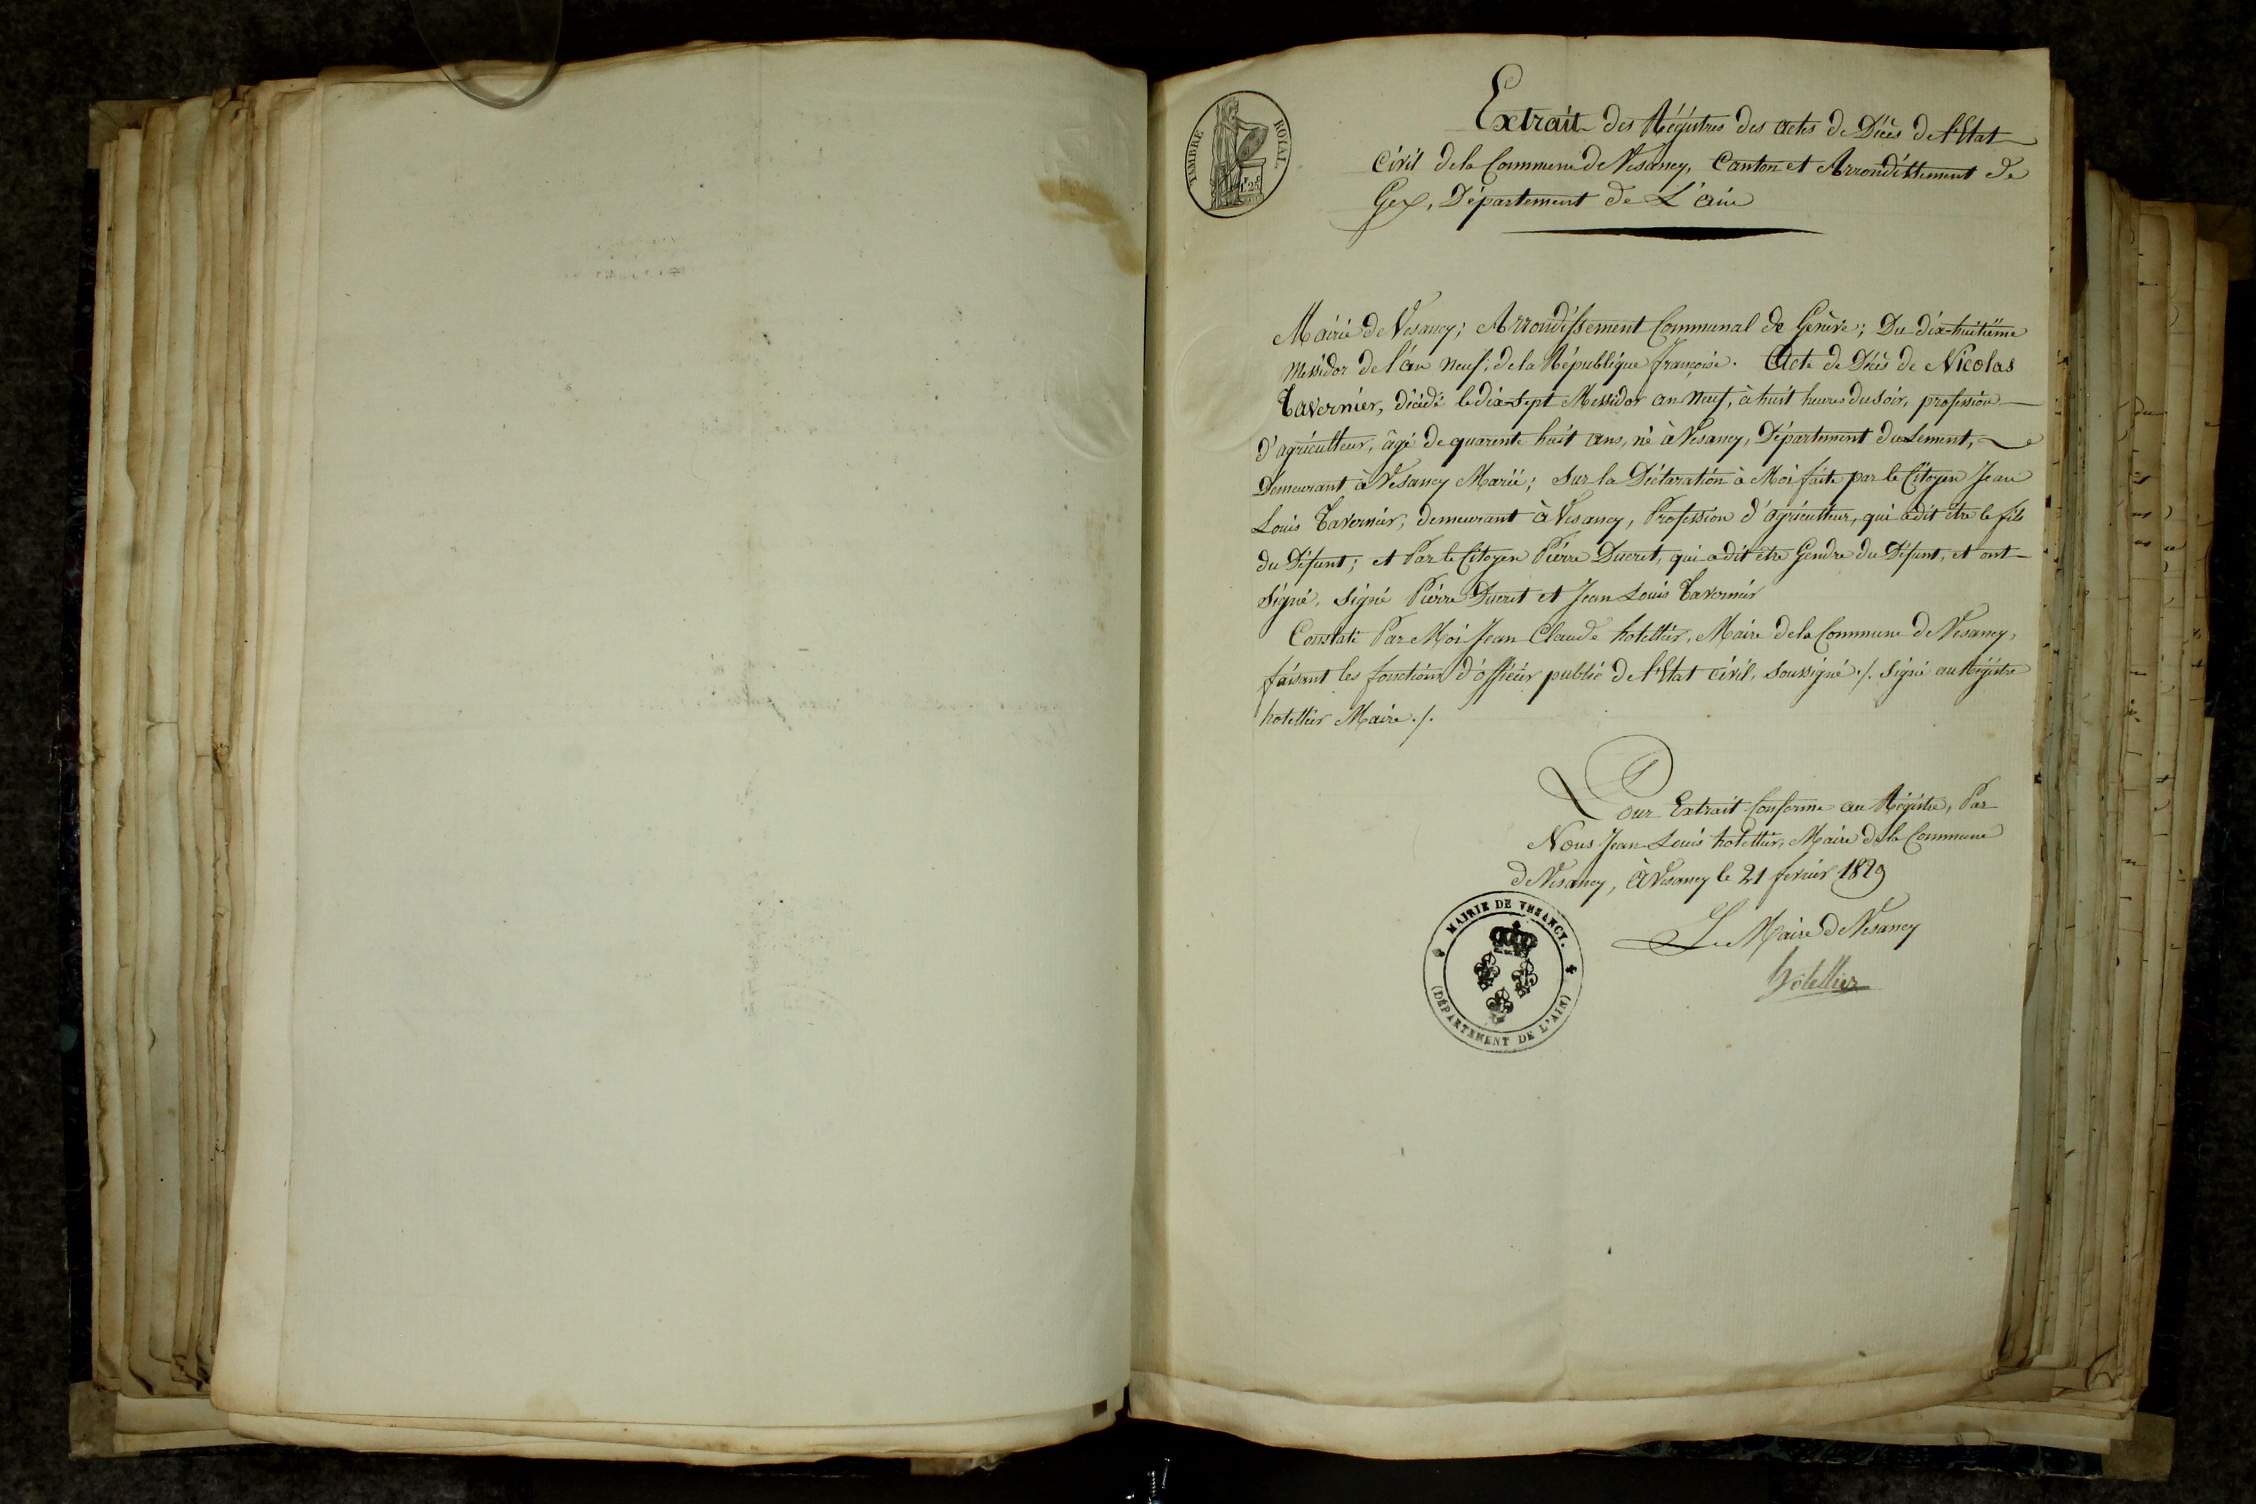 TIMBRE ROYAL
1F 25c
Extrait des Régistres des actes de Décès de l'Etat
Civil de la Commune de Vesancy, Canton et Arrondissement de
Gex, Département de L'ain
Mairie de Vesancy; Arrondissement Communal de Genève; Du dix-huitième
Messidor de l'an neuf, de la République françoise. Acte de Décès de Nicolas
Tavernier, décédé le dix-sept Messidor an neuf, à huit heures du soir, profession
d'agriculteur, âgé de quarente huit ans, né à Vesancy, Département du Lement,
Demeurant à Vesancy Marié; sur la Déclaration à Moi faite par le Citoyen Jean
Louis Tavernier, demeurant à Vesancy, Profession d'agriculteur, qui a dit être le fils
du Défunt; et Par le Citoyen Piérre Ducret, qui a dit être Gendre du Défunt, et ont
signé, signé Piérre Ducret et Jean Louis Tavernier
Constaté Par Moi Jean Claude hotellier, Maire de la Commune de Vesancy,
faisant les fonctions d'officier public de l'Etat civil, soussigné ./. signé au Régistre
hotellier Maire ./.
Pour Extrait Conforme au Régistre, Par
Nous Jean Louis hotellier, Maire de la Commune
de Vesancy, à Vesancy le 21 fevrier 1829
Le Maire de Vesancy
hotellier
MAIRIE DE VEZANCY.
(DÉPARTEMENT DE L'AIN)